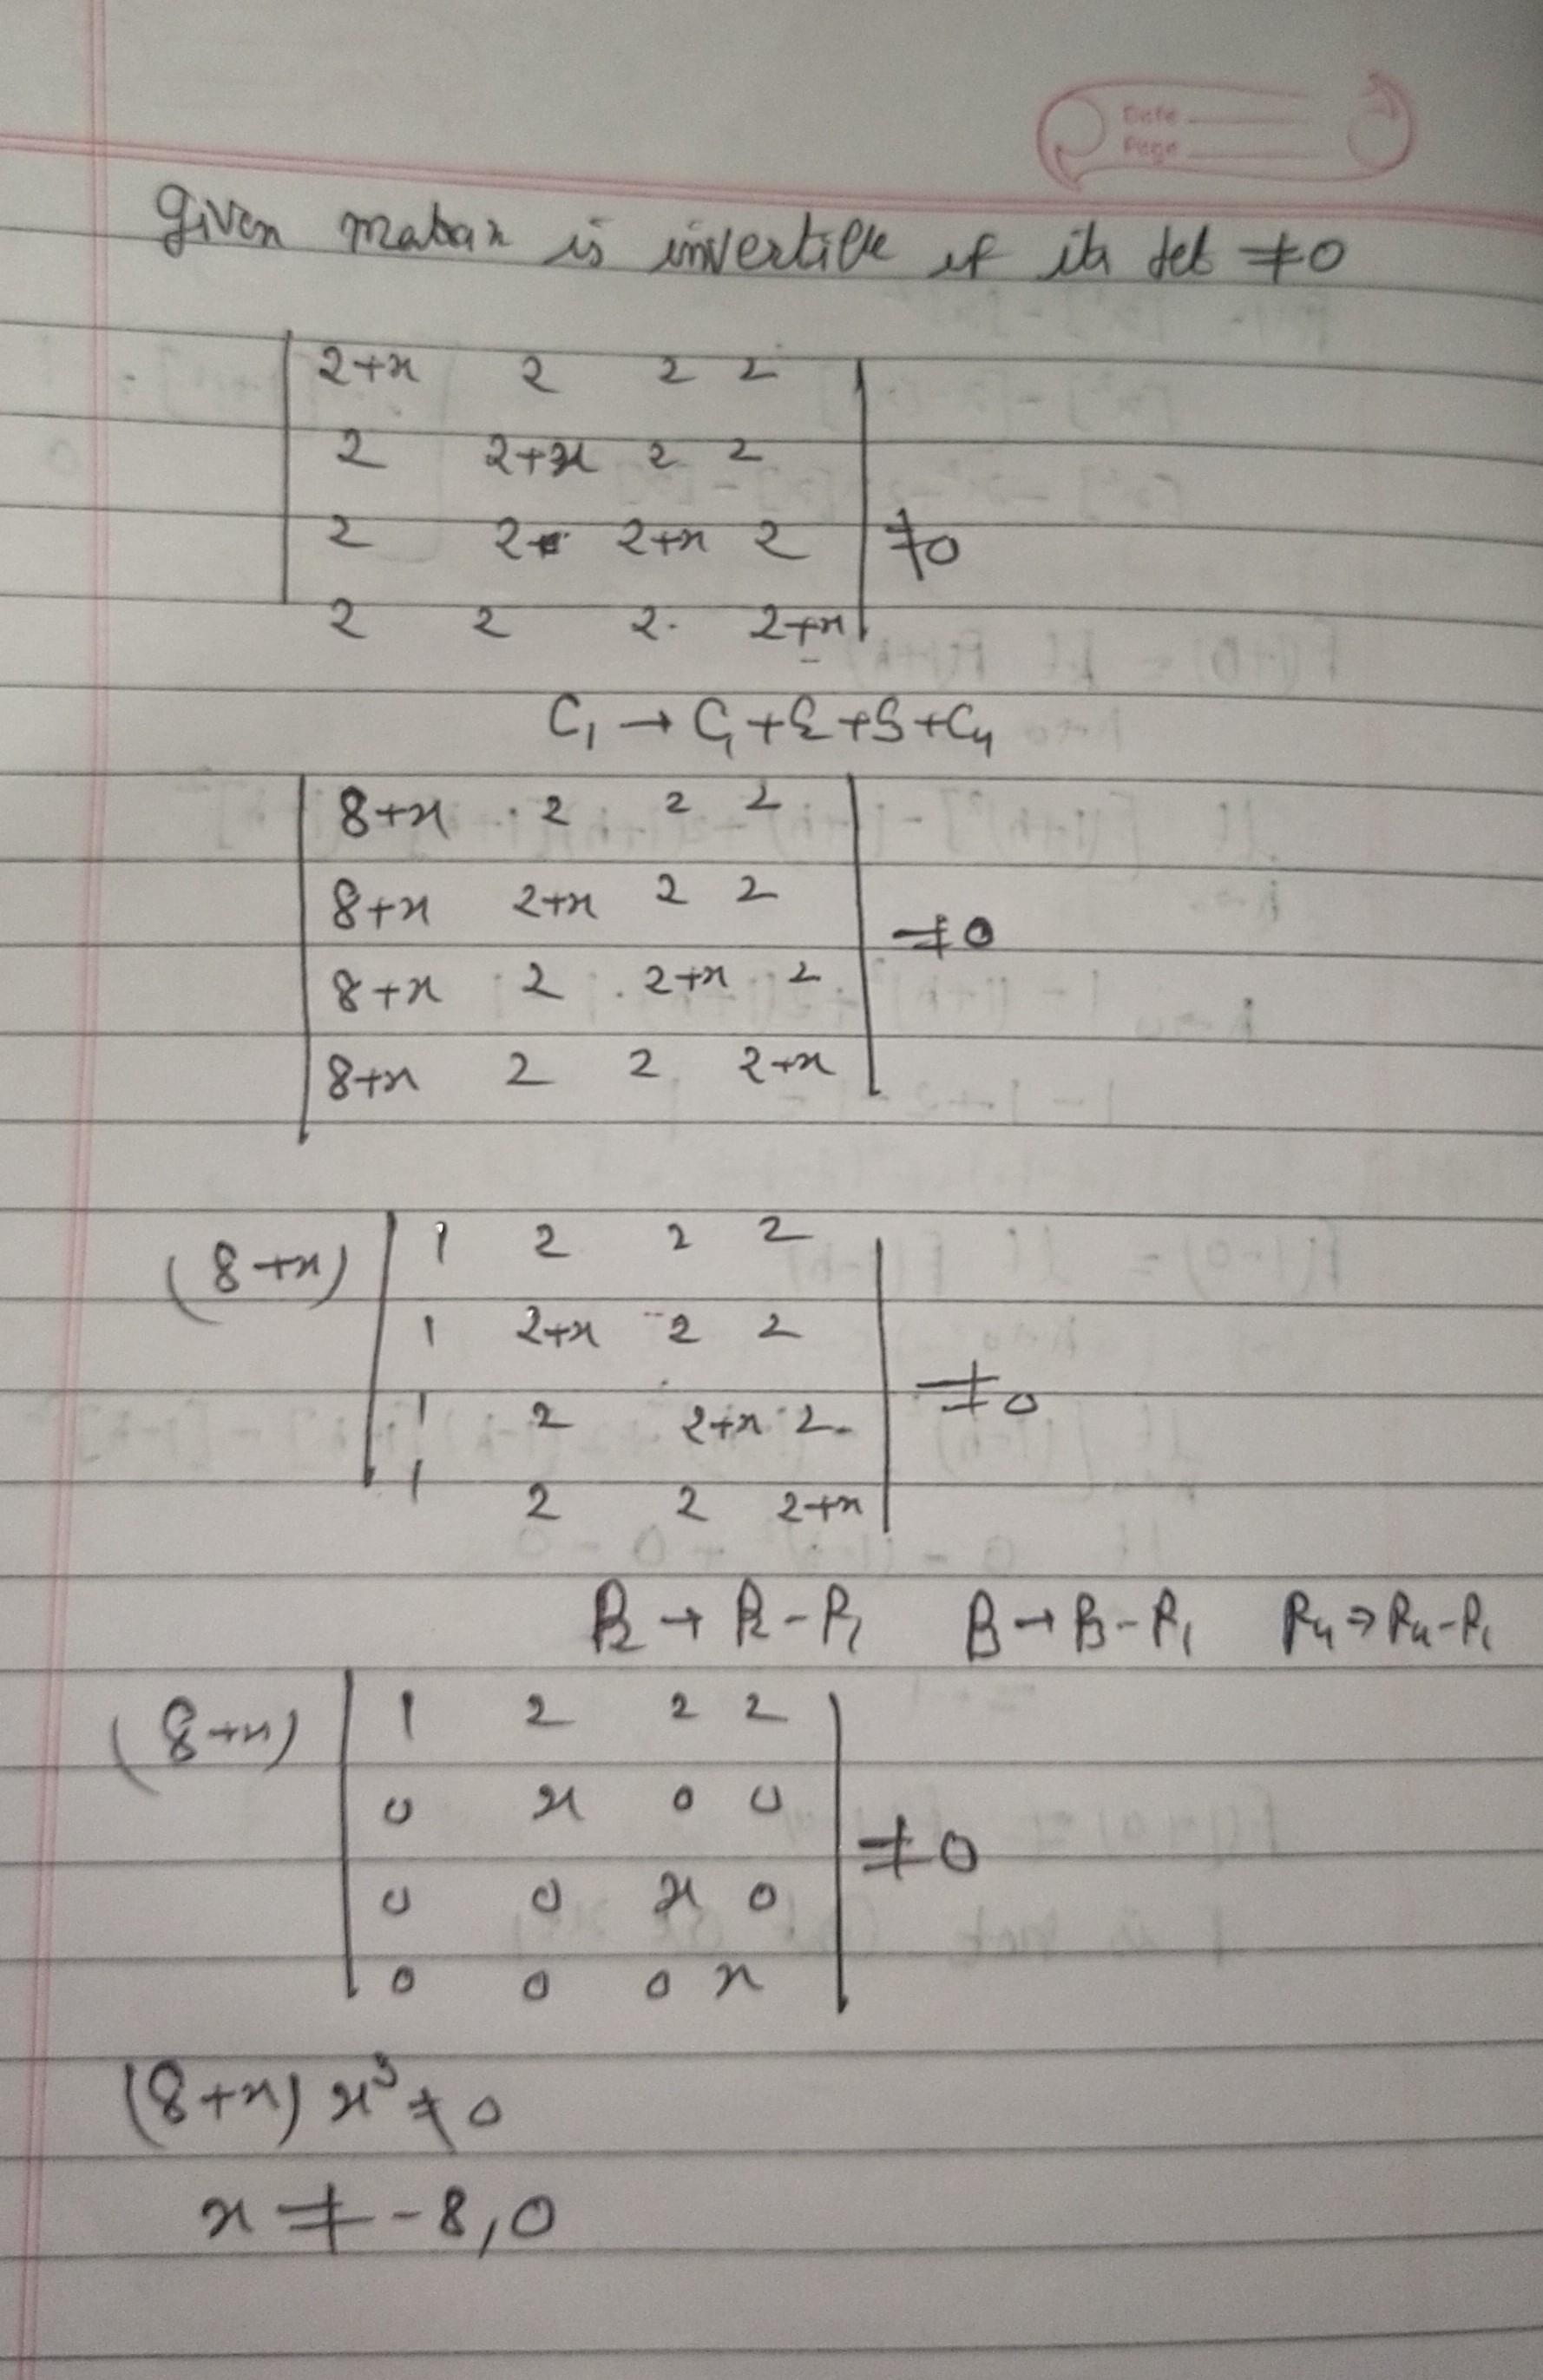 Date
Page
Given matrix is invertible if its det ≠0
2+x 2 2 2
2 2+x 2 2
2 2 2+x 2 ≠0
2 2 2 2+x
C1 → C1+C2+C3+C4
8+x 2 2 2
8+x 2+x 2 2 ≠0
8+x 2 2+x 2
8+x 2 2 2+x
(8+x) 1 2 2 2
1 2+x 2 2
1 2 2+x 2 ≠0
1 2 2 2+x
R2 → R2-R1 R3→R3-R1 R4⇒R4-R1
(8+x) 1 2 2 2
0 x 0 0
≠0
0 0 x 0
0 0 0 x
(8+x) x³≠0
x ≠ -8,0